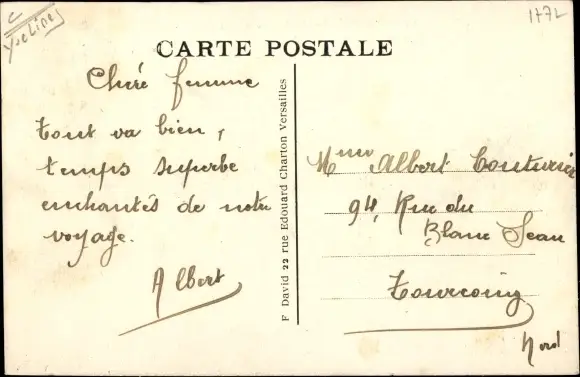 Yvelines
1772
CARTE POSTALE
Cheré femme
tout va bien,
temps superbe
enchantés de notre
voyage.
Albert
F David 22 rue Edouard Charton Versailles
Mme Albert Couturier
94, Rue du
Blanc Seau
Tourcoing
Nord